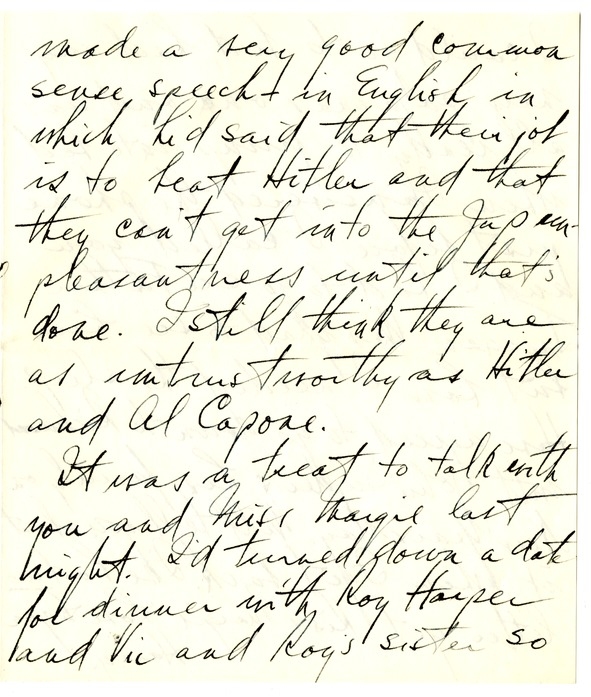 made a very good common
sense speech in English in
which he'd said that their job
is to beat Hitler and that
they can't get into the Jap un-
pleasantness until that's
done. I still think they are
as untrustworthy as Hitler
and Al Capone.
It was a treat to talk with
you and Miss Margie last
night. I'd turned down a date
for dinner with Roy Harper
and Vic and Roy's sister so